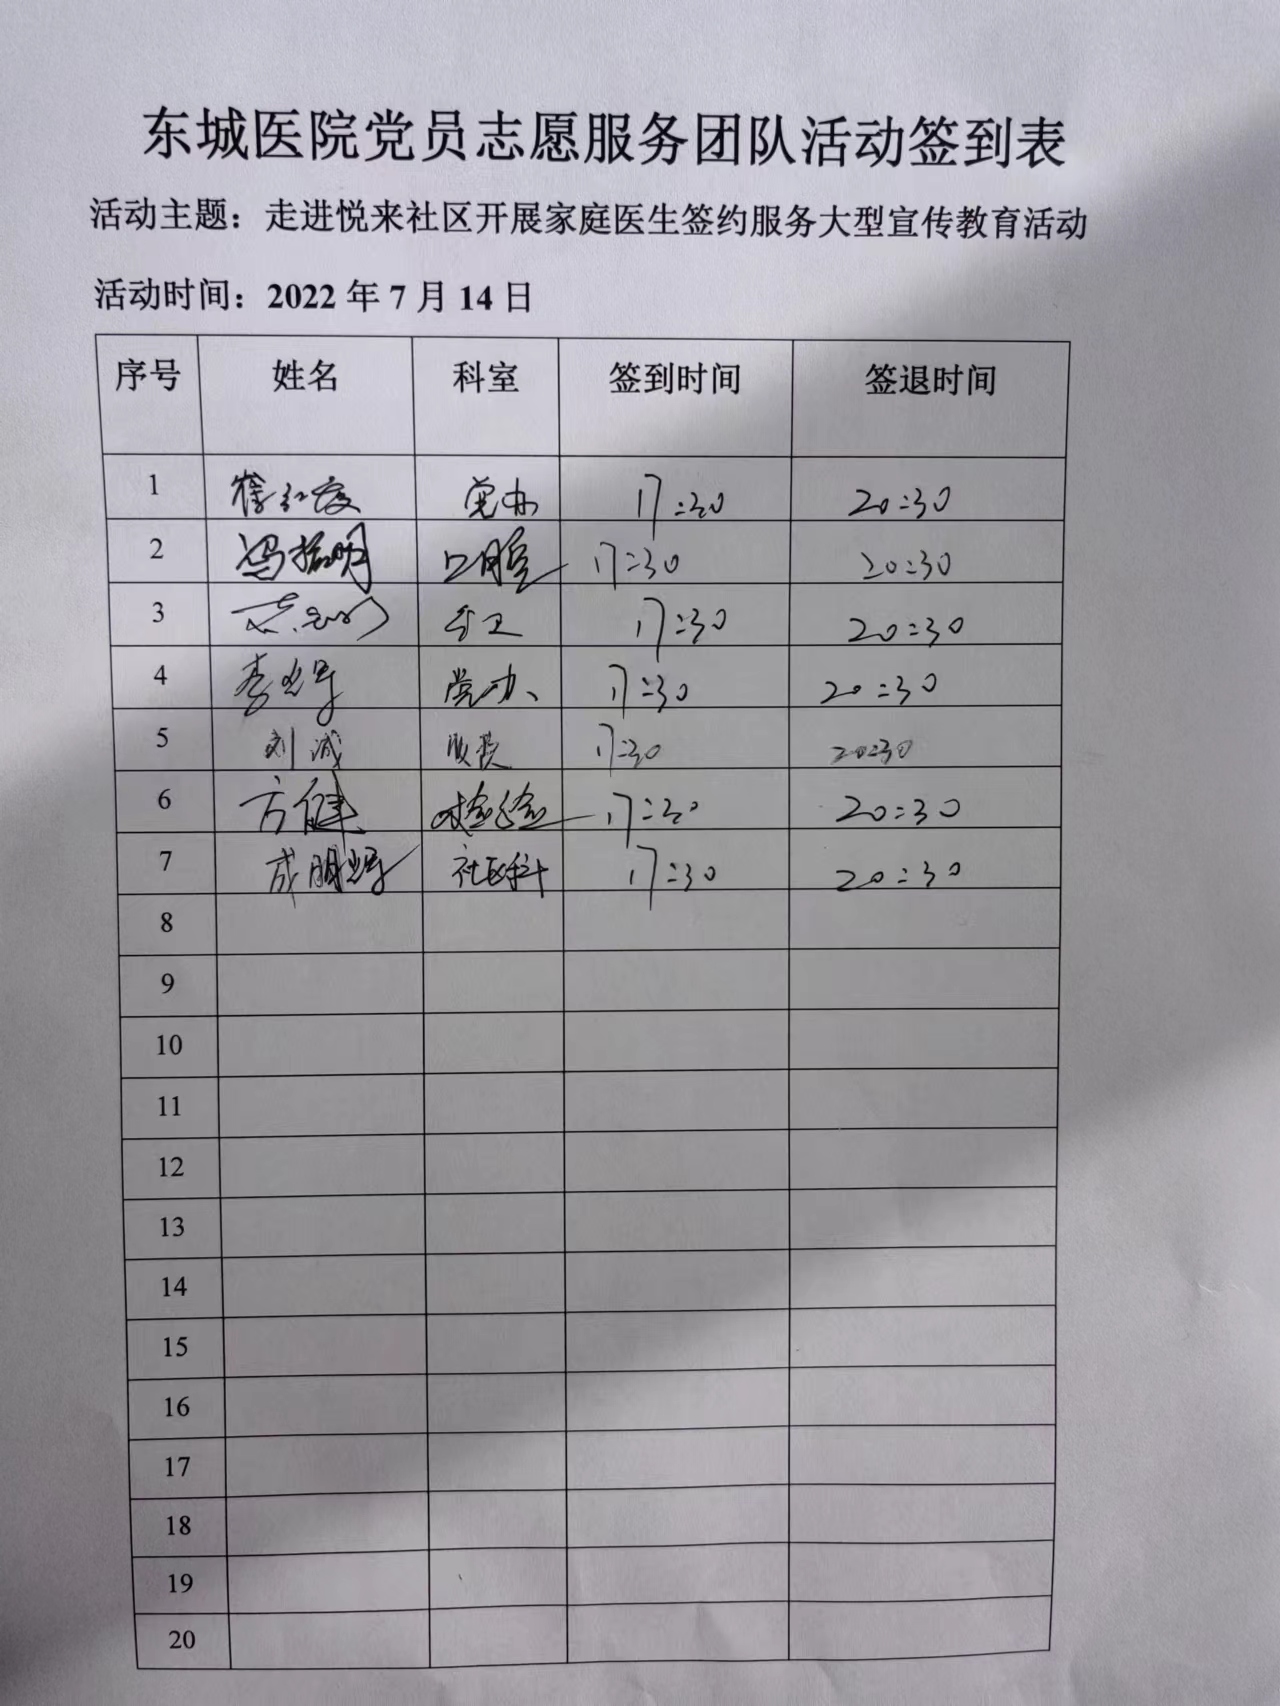 东城医院党员志愿服务团队活动签到表
活动主题：走进悦来社区开展家庭医生签约服务大型宣传教育活动
活动时间：2022 年 7 月 14 日
序号 姓名 科室 签到时间 签退时间
1 党办 17:30 20:30
2 冯振明 口腔 17:30 20:30
3 17:30 20:30
4 党办 17:30 20:30
5 刘诚 收费 17:30 20:30
6 方健 检验 17:30 20:30
7 成明辉 社区科 17:30 20:30
8
9
10
11
12
13
14
15
16
17
18
19
20